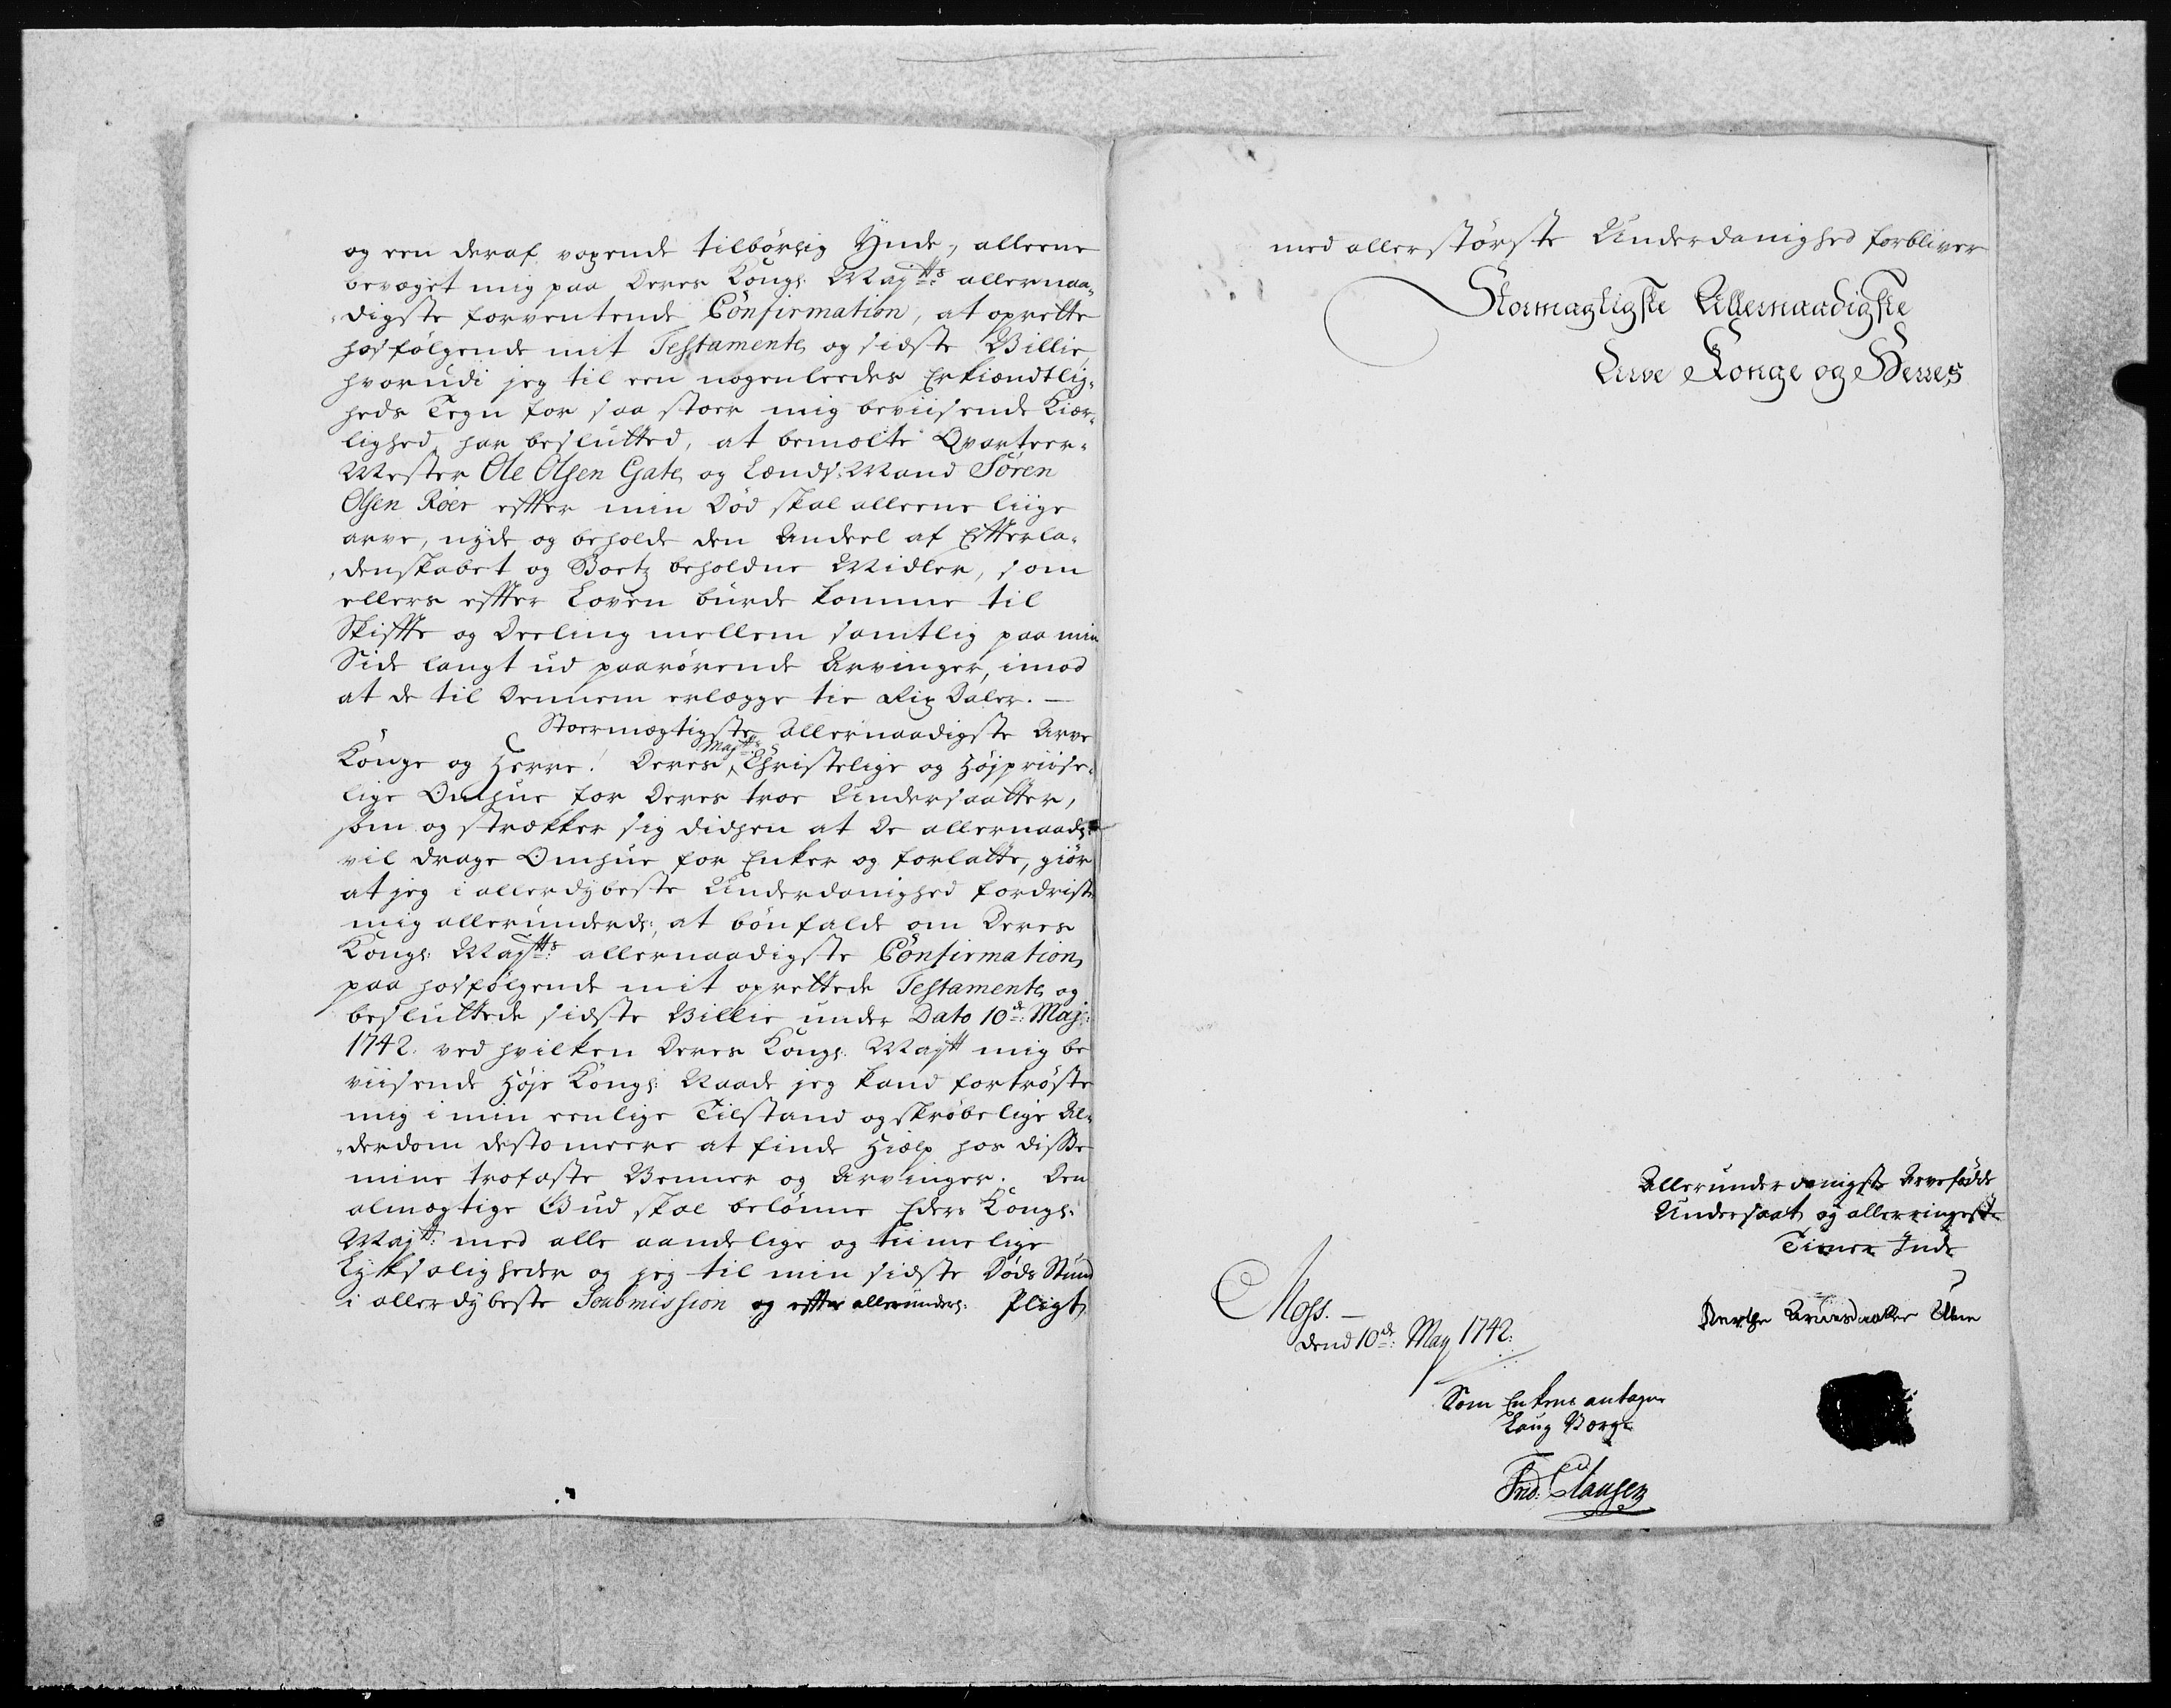 og een deraf voxende tilbørlig Ynde, alleene
bevæget mig paa Deres Kongl: Mayts: allernaa-
digste forventende Confirmation, at oprette
hosfølgende mit Testamente og sidste Villie,
hvorudi jeg til een nogenleedes Erkiændtlig-
heds Tegn for saa stoer mig beviisende Kiær-
lighed, har beslutted, at bemelte Qvarteer-
Mester Ole Olsen Gate og Lænds-Mand Søren
Olsen Röer effter min Død skal alleene liige
arve, nyde og beholde den Andeel af Efterla-
denskabet og Boetz beholdne Midler, som
ellers effter Loven burde komme til
Skiffte og Deeling mellem samtlig paa min
Side langt ud paarørende Arvinger, imod
at de til Dennem erlægge tie Rix Daler. —
Stoermægtigste Allernaadigste Arve
Konge og Herre! Deres Majts: Christelige og Højpriise-
lige Omhue for Deres troe Undersaatter,
som og strækker sig didhen at De allernaadl:
vil drage Omhue for Enker og forlatte, giør
at jeg i allerdybeste Underdanighed fordrister
mig allerunderdl:, at bønfalde om Deres
Kongl: Mayts: allernaadigste Confirmation
paa hosfølgende mit oprettede Testamente og
besluttede sidste Villie under Dato 10de: Maj:
1742. ved hvilken Deres Kongl: Maytt mig be
viisende Høje Kongl: Naade jeg kand fortrøste
mig i min eenlige Tilstand og skrøbelige Al-
derdom destomeere at finde Hielp hos disse
mine trofaste Venner og Arvinger. Den
almægtige Gud skal belønne Eders Kongl:
Maytt: med alle aandelige og timelige
Lyksaligheder og jeg til min sidste Døds Stund
i allerdybeste Soubmission og effter allerunderd: Pligt
med allerstørste Underdanighed forbliver
Stormægtigste Allernaadigste
Arve Konge og Herres
Allerunderdanigste Arvefødde
Undersaat og allerringeste
Moss. —
dend 10de: May 1742:
Som Enkens antagne
Laug Værge
Frid: Clausen